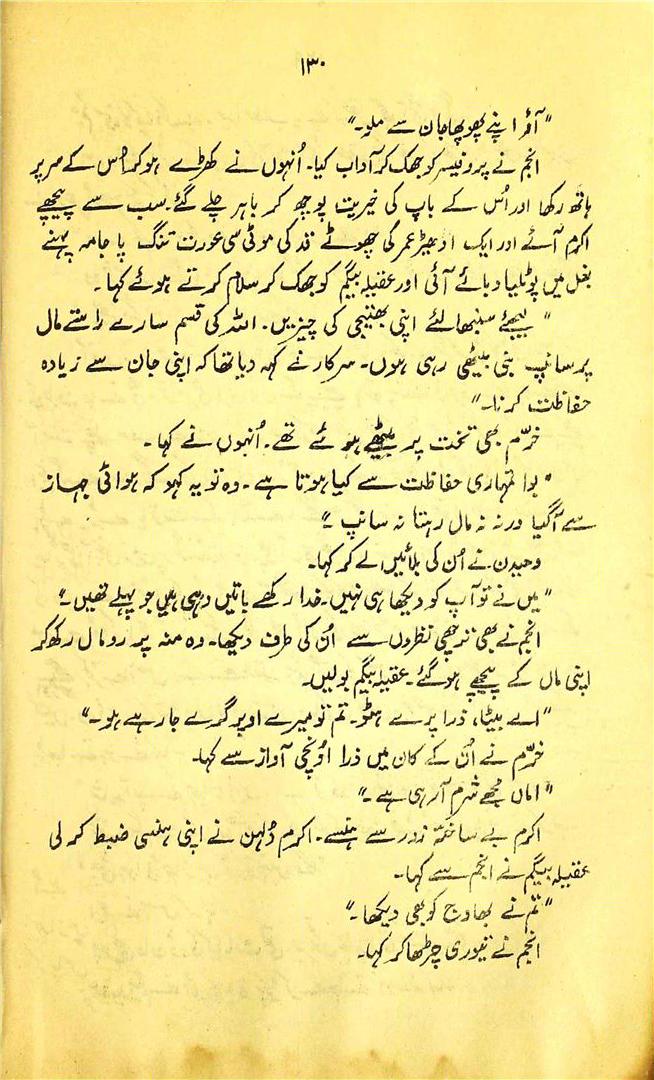 ۱۳۰
"آؤ اپنے پھوپھا جان سے ملو۔"
انجم نے پروفیسر کو جھک کر آداب کیا۔ اُنہوں نے کھڑے ہو کر اُس کے سر پر
ہاتھ رکھا اور اُس کے باپ کی خیریت پوچھ کر باہر چلے گئے۔ سب سے پیچھے
اکرم آئے اور ایک ادھیڑ عمر کی چھوٹے قد کی موٹی سی عورت تنگ پاجامہ پہنے
بغل میں پوٹلیا دبائے آئی اور عقیلہ بیگم کو جھک کر سلام کرتے ہوئے کہا۔
"لیجئے سنبھالئے اپنی بھتیجی کی چیزیں۔ اللہ کی قسم سارے راستے مال
پر سانپ بنی بیٹھی رہی ہوں۔ سرکار نے کہہ دیا تھا کہ اپنی جان سے زیادہ
حفاظت کرنا۔"
خرّم بھی تخت پر بیٹھے ہوئے تھے۔ اُنہوں نے کہا۔
"بوا تمہاری حفاظت سے کیا ہوتا ہے۔ وہ تو یہ کہو کہ ہوائی جہاز
سے آگیا ورنہ نہ مال رہتا نہ سانپ"
وحیدن نے اُن کی بلائیں لے کر کہا۔
"میں نے تو آپ کو دیکھا ہی نہیں۔ خدا رکھے باتیں وہی ہیں جو پہلے تھیں۔"
انجم نے بھی ترچھی نظروں سے اُن کی طرف دیکھا۔ وہ منہ پر رومال رکھ کر
اپنی ماں کے پیچھے ہو گئے۔ عقیلہ بیگم بولیں۔
"اے بیٹا، ذرا پرے ہٹو۔ تم تو میرے اوپر گرے جا رہے ہو۔"
خرّم نے اُن کے کان میں ذرا اونچی آواز سے کہا۔
"اماں مجھے شرم آ رہی ہے۔"
اکرم بے ساختہ زور سے ہنسے۔ اکرم دُلہن نے اپنی ہنسی ضبط کر لی
عقیلہ بیگم نے انجم سے کہا۔
"تم نے بھاوج کو بھی دیکھا۔"
انجم نے تیوری چڑھا کر کہا۔